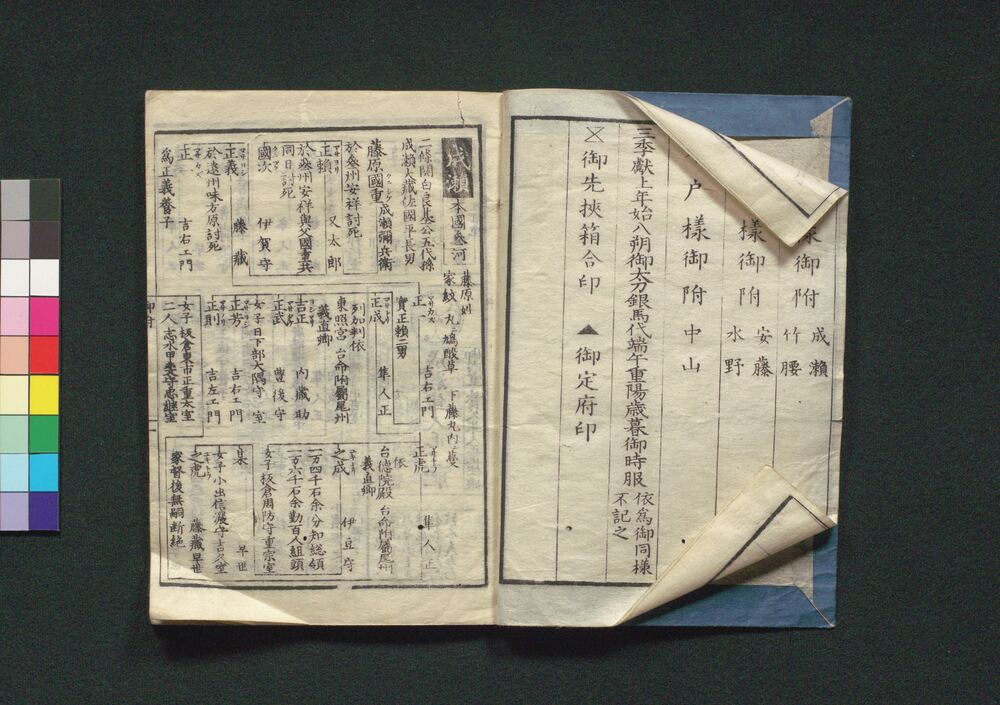 様御附 成瀬
竹腰
様御附 安藤
水野
戸様御附 中山
三季献上年始八朔御太刀銀馬代端午重陽歳暮御時服 依為御同様
不記之
御先挟箱合印 ▲御定府印
成瀬 本國参河 藤原姓
家紋 丸ニ鳩酸草 下藤丸内
二條関白良基公五代孫
成瀬大蔵佐國平長男
藤原國重 成瀬彌兵衛
於参州安祥討死
正頼 又太郎
於参州安祥與父國重共
同日討死
國次 伊賀守
正義 藤蔵
於遠州味方原討死
正一 吉右エ門
為正義養子
正一 吉右エ門
實正頼二男
正成 隼人正
列加判依
東照宮 台命附屬尾州
義直卿
吉正 内蔵助
正武 豊後守
女子日下部大隅守 室
正芳 吉右エ門
正則 吉左エ門
女子 板倉東市正重大室
二人 志水甲斐守忠継室
正虎 隼人正
依
台徳院殿 台命附屬尾州
義直卿
之成 伊豆守
一万四千石余分知総領
一万六千石余勤百人組頭
女子 板倉周防守重宗室
某 早世
女子 小出信濃守吉久室
之虎 藤蔵早世
家督後無嗣断絶